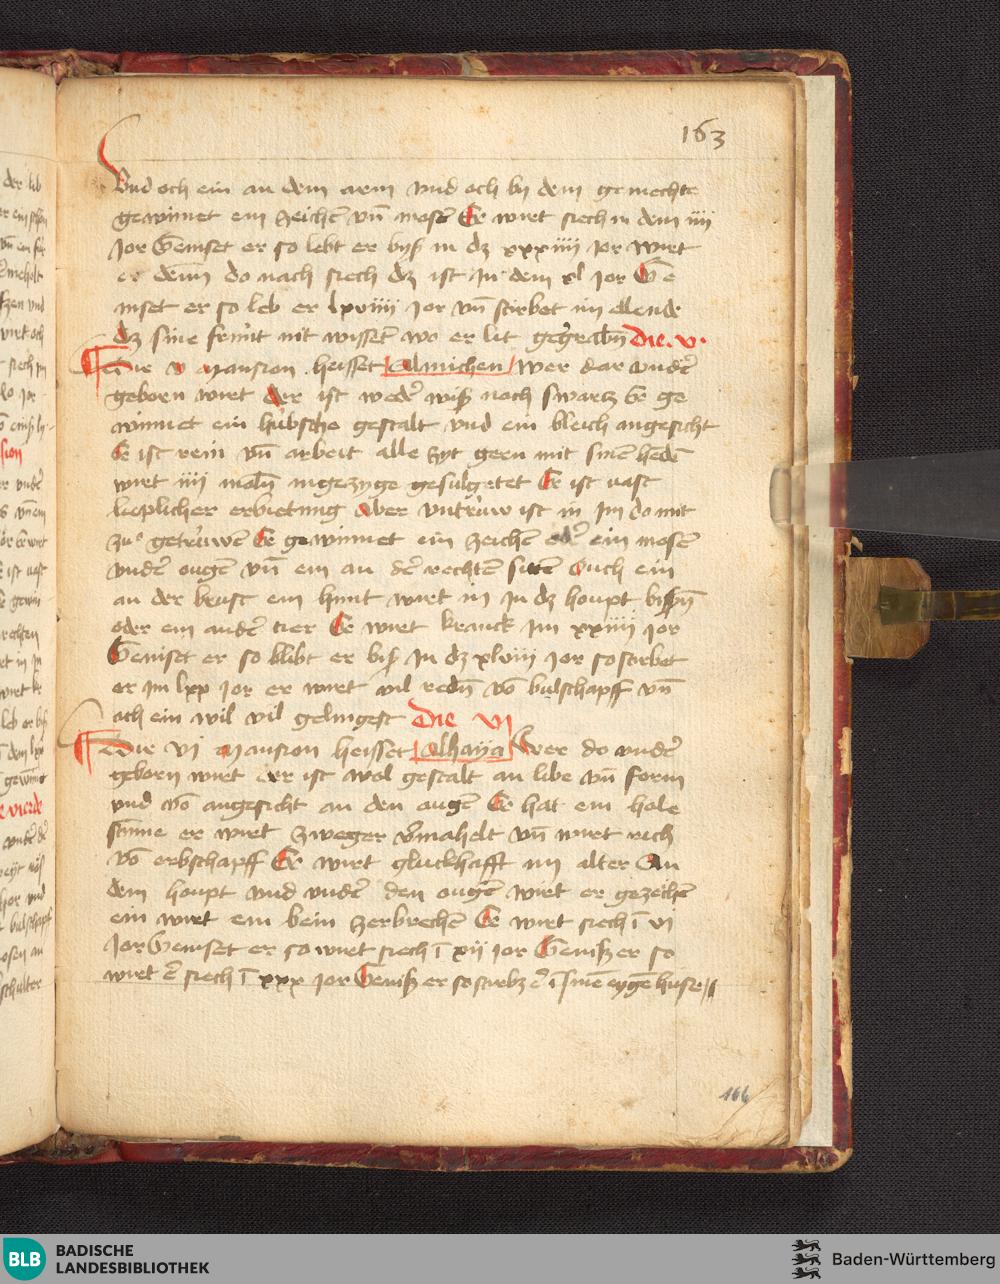 163
Und och ein an dem arm und och by dem gemechte
gewinnet ein zeichen vn̄ mosē Er wirt siech in dem iiii
Jor Geniset er so lebt er byß in dz xxxiiii Jor wirt
er denn do noch siech dz ist In dem xl Jor Ge
niset er so leb er lxviiii Jor vn̄ stirbet im ellende
dz sine frúnt nit wissent wo er lit gegrabn̄ Die .v.
Die v Mansion heisset Almichen wer dar undē
geborn wirt der ist weder wiß noch swartz Er ge
winnet ein hubsche gestalt vnd ein bleich angesicht
Er ist rein vn̄ arbeit alle zyt gern mit sinē hedē
wirt iiii moln̄ Er ist vast
lieplicher erbietung Aber vntruw ist in Im do mit
zuͦ getruwē Er gewinnet ein zeichen oder ein mosē
vnder ougē vn̄ ein an der rechtē sitē Ouch ein
an der brust ein hunt wirt in In dz houpt bissn̄
oder ein ander tier Er wirt kranck Im xxiiii Jor
Geniset er so blibt er biß In dz xlviii Jor so stirbet
er Im lxx Jor er wirt vil redn̄ vō bulschapff vn̄
och ein wil vil gelingest Die vi
Die vi Mansion heisset Alhaya Wer do undē
geborn wirt der ist wol gestalt an libe vn̄ form
vnd vō angesicht an den ougē Er hat ein hole
stimme er wirt zweger vermahelt vn̄ wirt rich
vō erbschapff Er wirt gluckhafft im alter An
dem houpt vnd vnder den ougē wirt er gezeichē
ein wirt ein bein zerbrechē Er wirt siech ī vi
Jor Geniset er so wirt siech ī xii Jor Genißt er so
wirt er siech ī xxx Jor Genißt er so stirbz er ī sinē eygē huse
166
BLB BADISCHE
LANDESBIBLIOTHEK
Baden-Württemberg